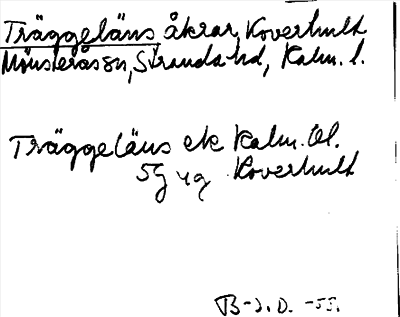 Träggeläns åkrar, Koverhult
Mönsterås sn, Stranda hd, Kalm. l.
Träggeläns ek Kalm. Bl.
5g 4g Koverhult
B-J. D. -55.